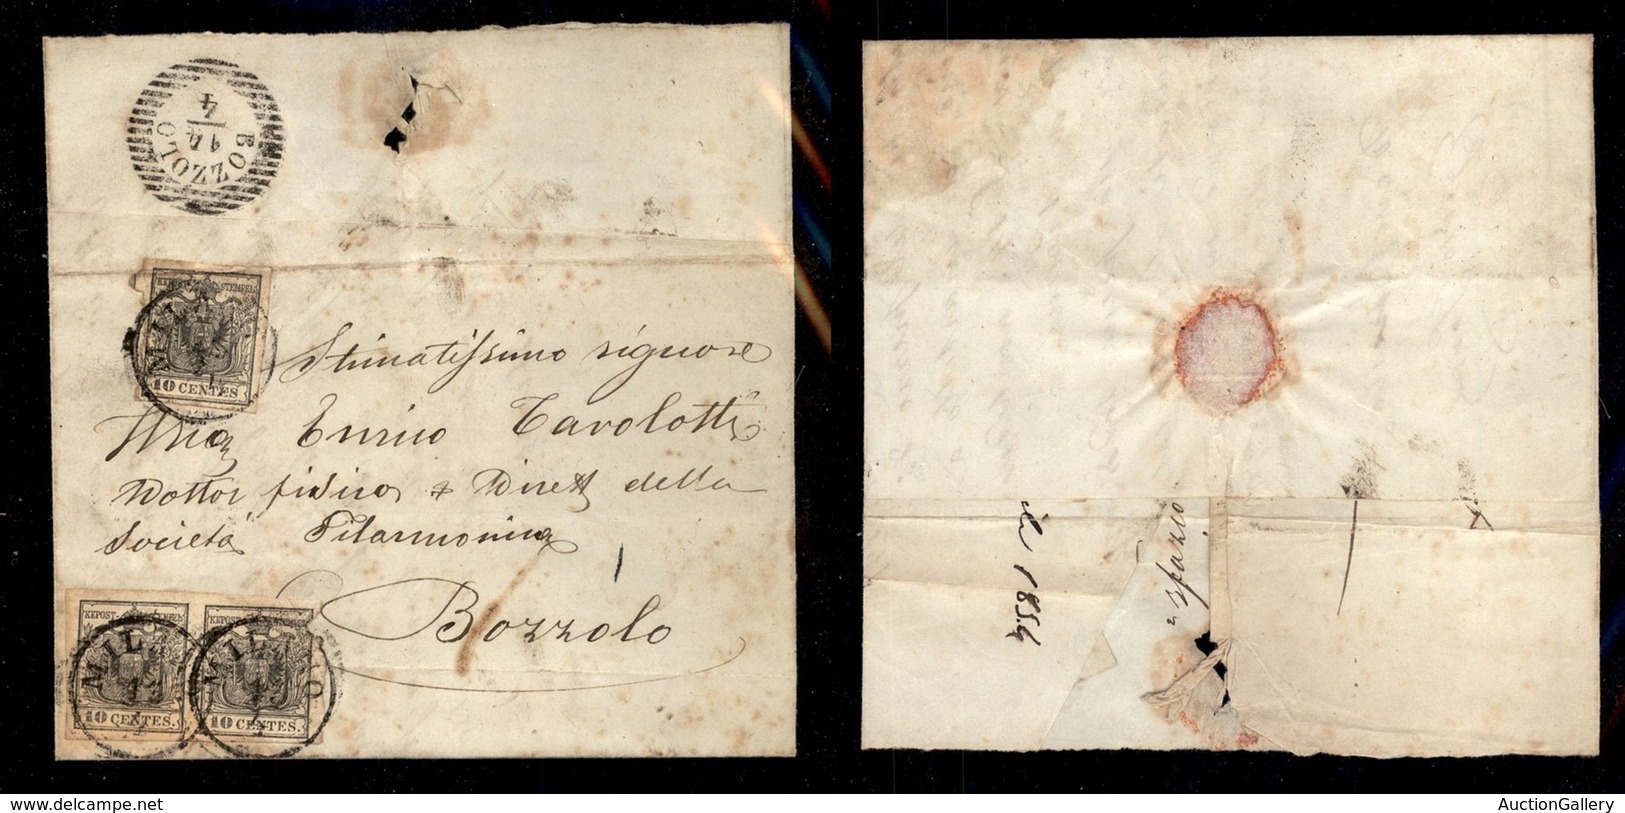 BOZZOLO
14
4
KKPOST-STEMPEL
MIL
10 CENTES
Stimatissimo signore
Enrico Tavolotti
Dottor fisico & Dirett della
Società Filarmonica
1
Bozzolo
KKPOST-STEMPEL
MIL
10 CENTES.
KKPOST-STEMPEL
MILANO
10 CENTES.
il 1854
spazio
www.delcampe.net
AuctionGallery